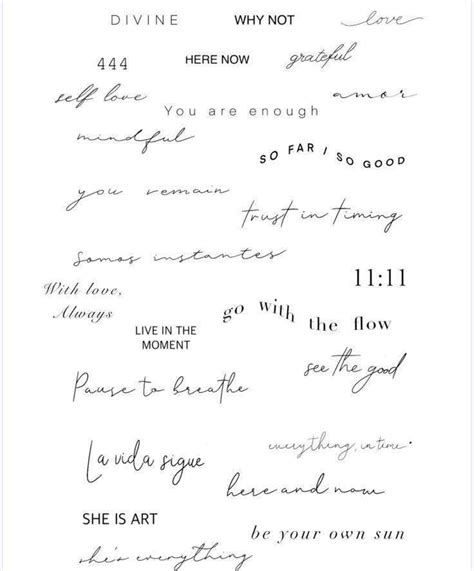 DIVINE
WHY NOT
love
444
HERE NOW
grateful
self love
amor
You are enough
mindful
SO FAR / SO GOOD
you remain
trust in timing
Somos instantes
11:11
With love,
Always
go with
the flow
LIVE IN THE
MOMENT
see the good
Pause to breathe
everything, in time.
La vida sigue
here and now
SHE IS ART
be your own sun
she's everything